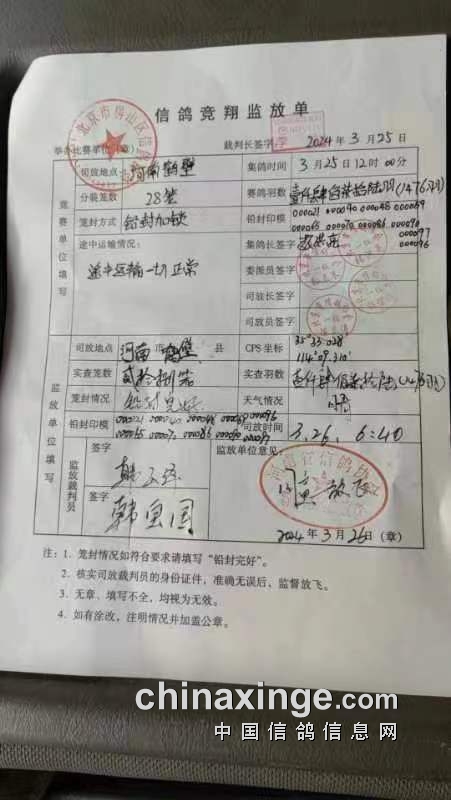 信鸽竞翔监放单
北京市房山区信鸽
举办比赛单位(章) 裁判长签字: 2024年3月25日
竞赛单位填写
司放地点: 河南鹤壁 集鸽时间 3月25日12时00分
分装笼数 28笼 赛鸽羽数 壹仟肆佰柒拾陆羽(1476羽)
笼封方式 铅封加锁 铅封印模
途中运输情况: 集鸽长签字
途中运输一切正常 委派员签字
司放长签字
司放员签字
监放单位填写
司放地点 河南 市 鹤壁 县 CPS坐标 35°33.028 114°09.310'
实查笼数 贰拾捌笼 实查羽数 壹仟肆佰柒拾陆(1476羽)
笼封情况 铅封完好 天气情况 晴
铅封印模 司放时间 3.26. 6:40
监放裁判员 签字 监放单位意见:
签字 韩 同意放飞
2024年3月26日(章)
注:1. 笼封情况如符合要求请填写“铅封完好”。
2. 核实司放裁判员的身份证件,准确无误后,监督放飞。
3. 无章、填写不全,均视为无效。
4. 如有涂改,注明情况并加盖公章。
chinaxinge.com
中国信鸽信息网